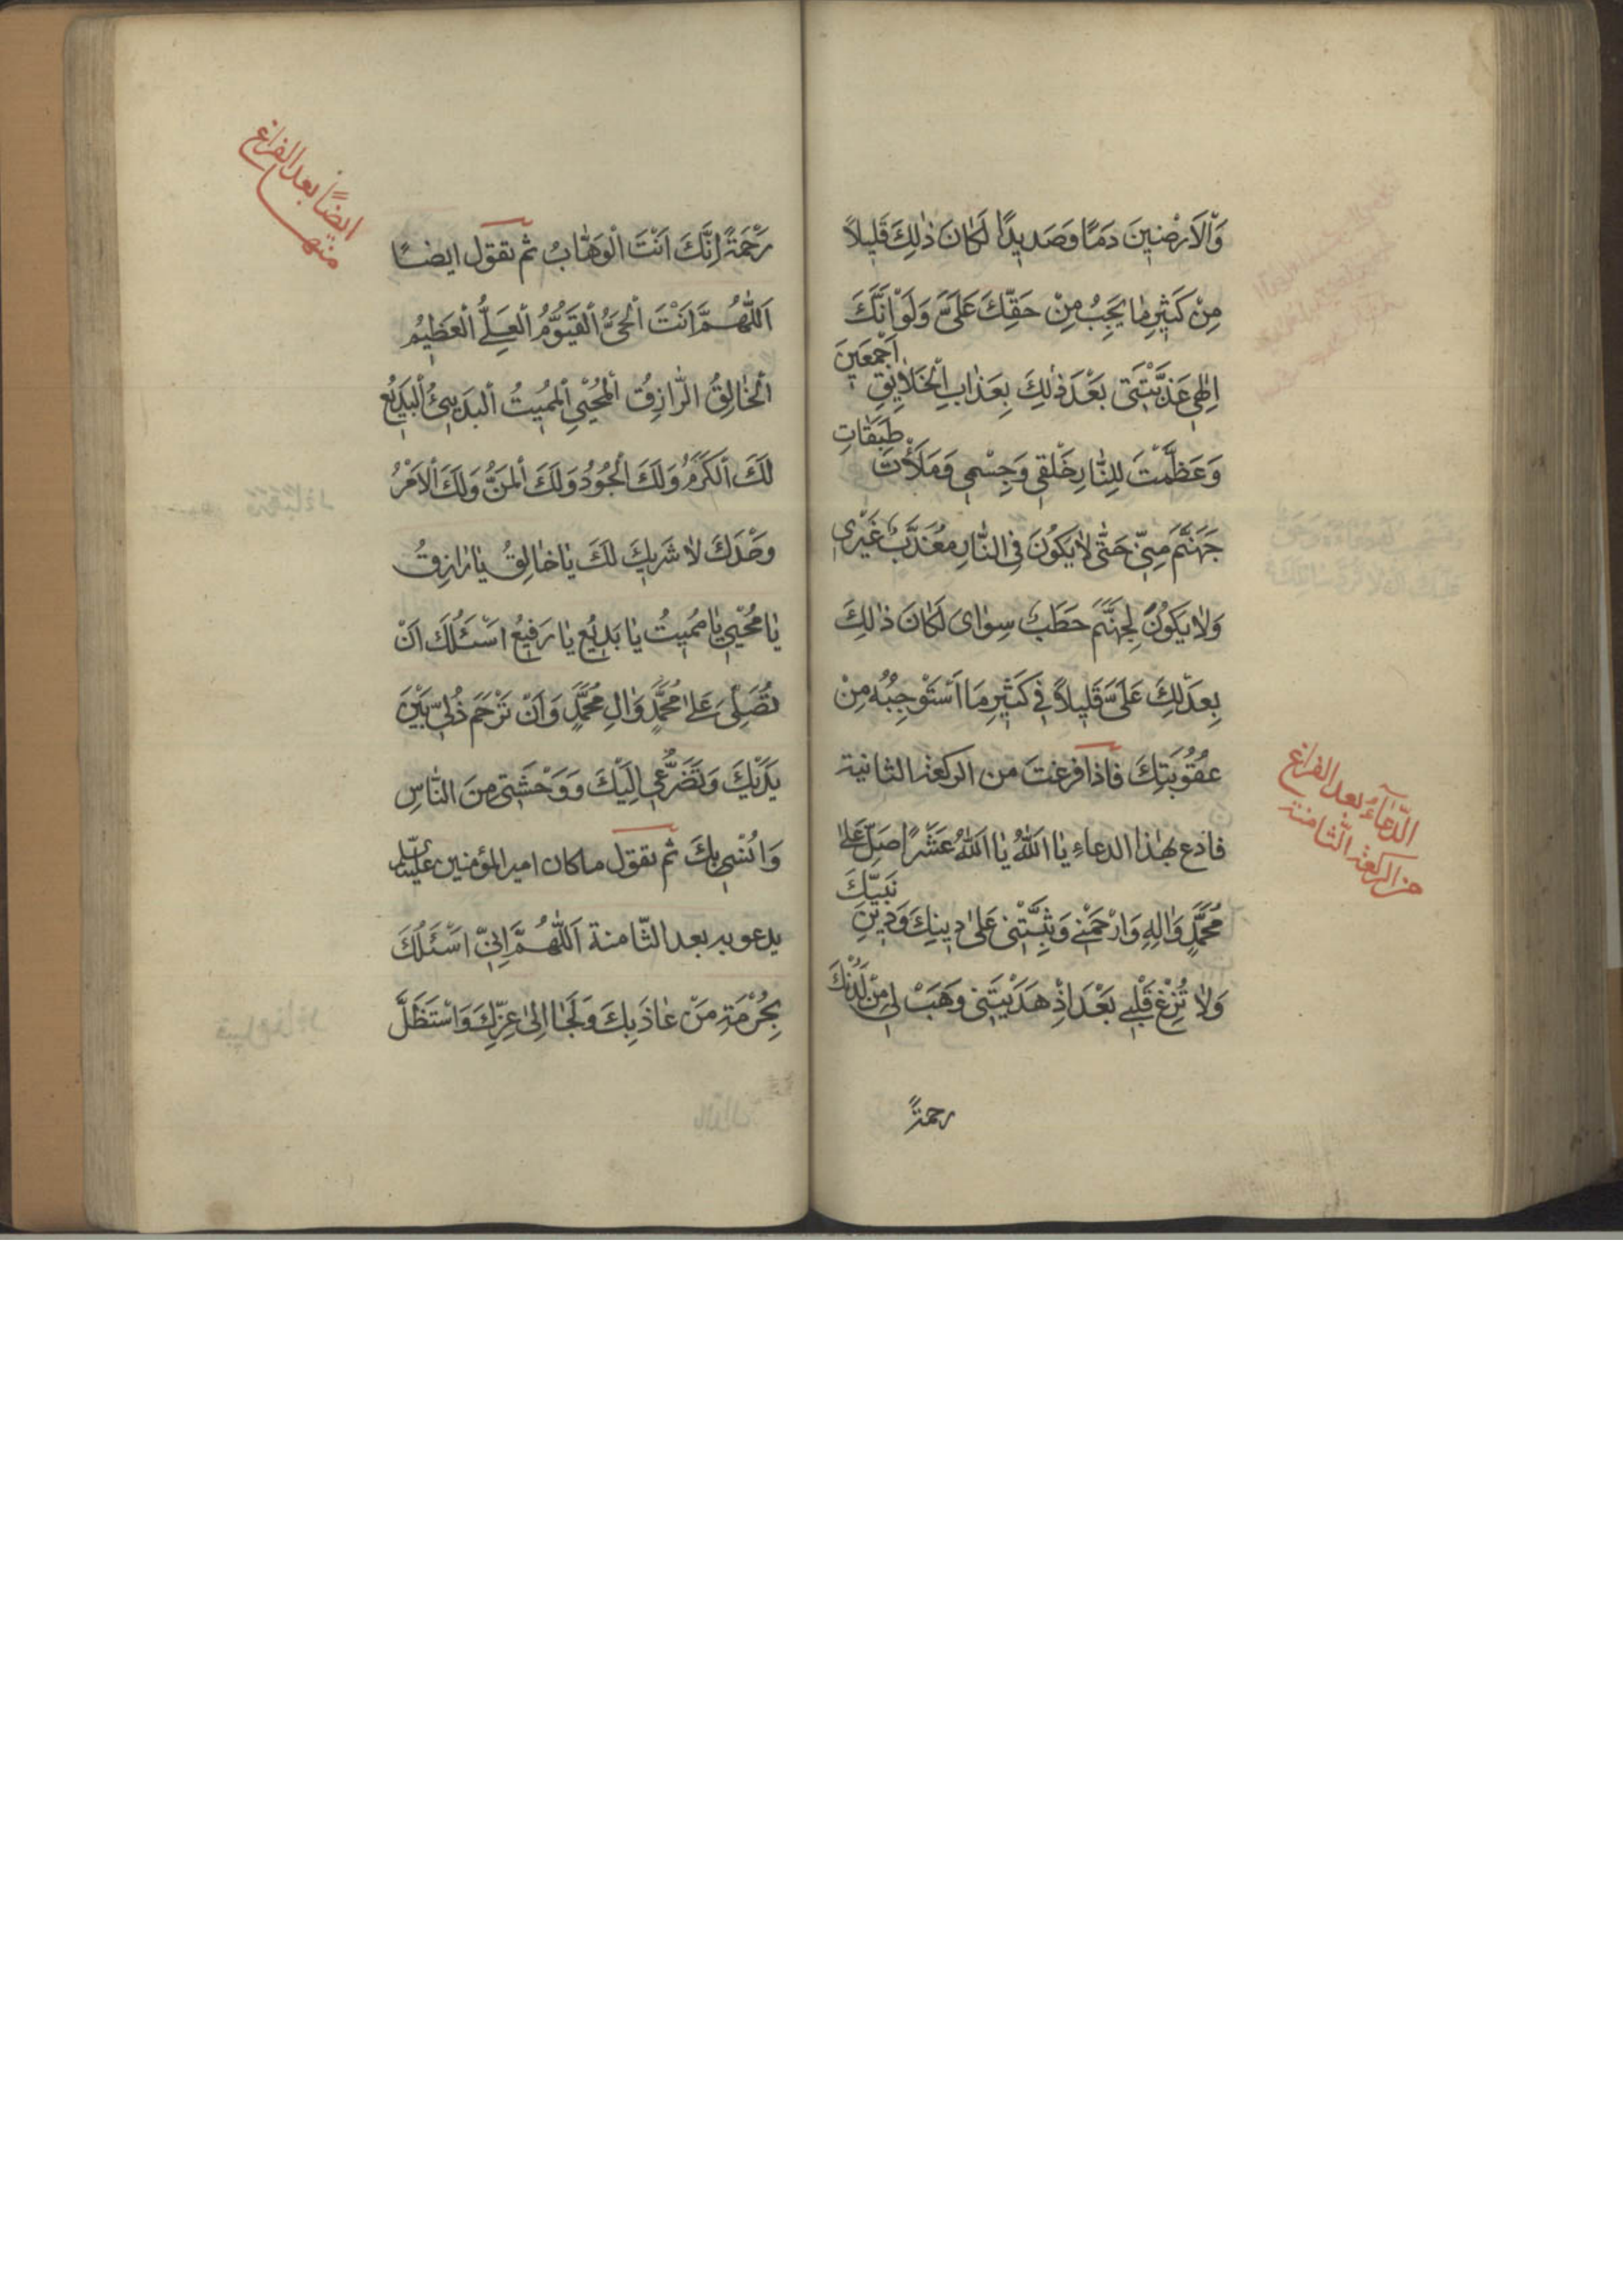 وَالْاَرَضينَ دَمًا وَصَديدًا لَكانَ ذٰلِكَ قَليلاً
مِنْ كَثيرِ ما يَجِبُ مِنْ حَقِّكَ عَلَىَّ وَلَوْ اَنَّكَ
اِلٰهى عَذَّبْتَنى بَعْدَ ذٰلِكَ بِعَذابِ الْخَلايِقِ اَجْمَعينَ
وَعَظَّمْتَ لِلنّارِ خَلْقى وَجِسْمى وَمَلَأْتَ طَبَقاتِ
جَهَنَّمَ مِنّى حَتّٰى لا يَكُونَ فِى النّارِ مُعَذَّبٌ غَيْرى
وَلا يَكُونُ لِجَهَنَّمَ حَطَبٌ سِواىَ لَكانَ ذٰلِكَ
بِعَدْلِكَ عَلَىَّ قَليلاً فى كَثيرِ مَا اَسْتَوْجِبُهُ مِنْ
عُقُوبَتِكَ فاذا فرغت من الركعة الثانية
فادع بهٰذا الدعاء يا اَللّٰهُ يا اَللّٰهُ عَشْرًا صَلِّ عَلٰى
مُحَمَّدٍ وَاٰلِهِ وَارْحَمْنى وَثَبِّتْنى عَلٰى دينِكَ وَدينِ نَبِيِّكَ
وَلا تُزِغْ قَلْبى بَعْدَ اِذْ هَدَيْتَنى وَهَبْ لى مِنْ لَدُنْكَ
رحمةً
الدّعاءُ بعد الفراغ
من الركعة الثّامنة
رَحْمَةً اِنَّكَ اَنْتَ الْوَهّابُ ثم تقول ايضًا
اَللّٰهُمَّ اَنْتَ الْحَىُّ الْقَيُّومُ الْعَلِىُّ الْعَظيمُ
الْخالِقُ الرّازِقُ الْمُحْيِى الْمُميتُ الْبَديئُ الْبَديعُ
لَكَ الْكَرَمُ وَلَكَ الْجُودُ وَلَكَ الْمَنُّ وَلَكَ الْاَمْرُ
وَحْدَكَ لا شَريكَ لَكَ يا خالِقُ يا رازِقُ
يا مُحْيى يا مُميتُ يا بَديعُ يا رَفيعُ اَسْئَلُكَ اَنْ
تُصَلِّىَ عَلٰى مُحَمَّدٍ وَاٰلِ مُحَمَّدٍ وَاَنْ تَرْحَمَ ذُلّى بَيْنَ
يَدَيْكَ وَتَضَرُّعى اِلَيْكَ وَوَحْشَتى مِنَ النّاسِ
وَاُنْسى بِكَ ثم تقول ما كان امير المؤمنين عليه السلم
يدعو به بعد الثّامنة اَللّٰهُمَّ اِنّى اَسْئَلُكَ
بِحُرْمَةِ مَنْ عاذَ بِكَ وَلَجَا اِلٰى عِزِّكَ وَاسْتَظَلَّ
ايضًا بعد الفراغ
منها